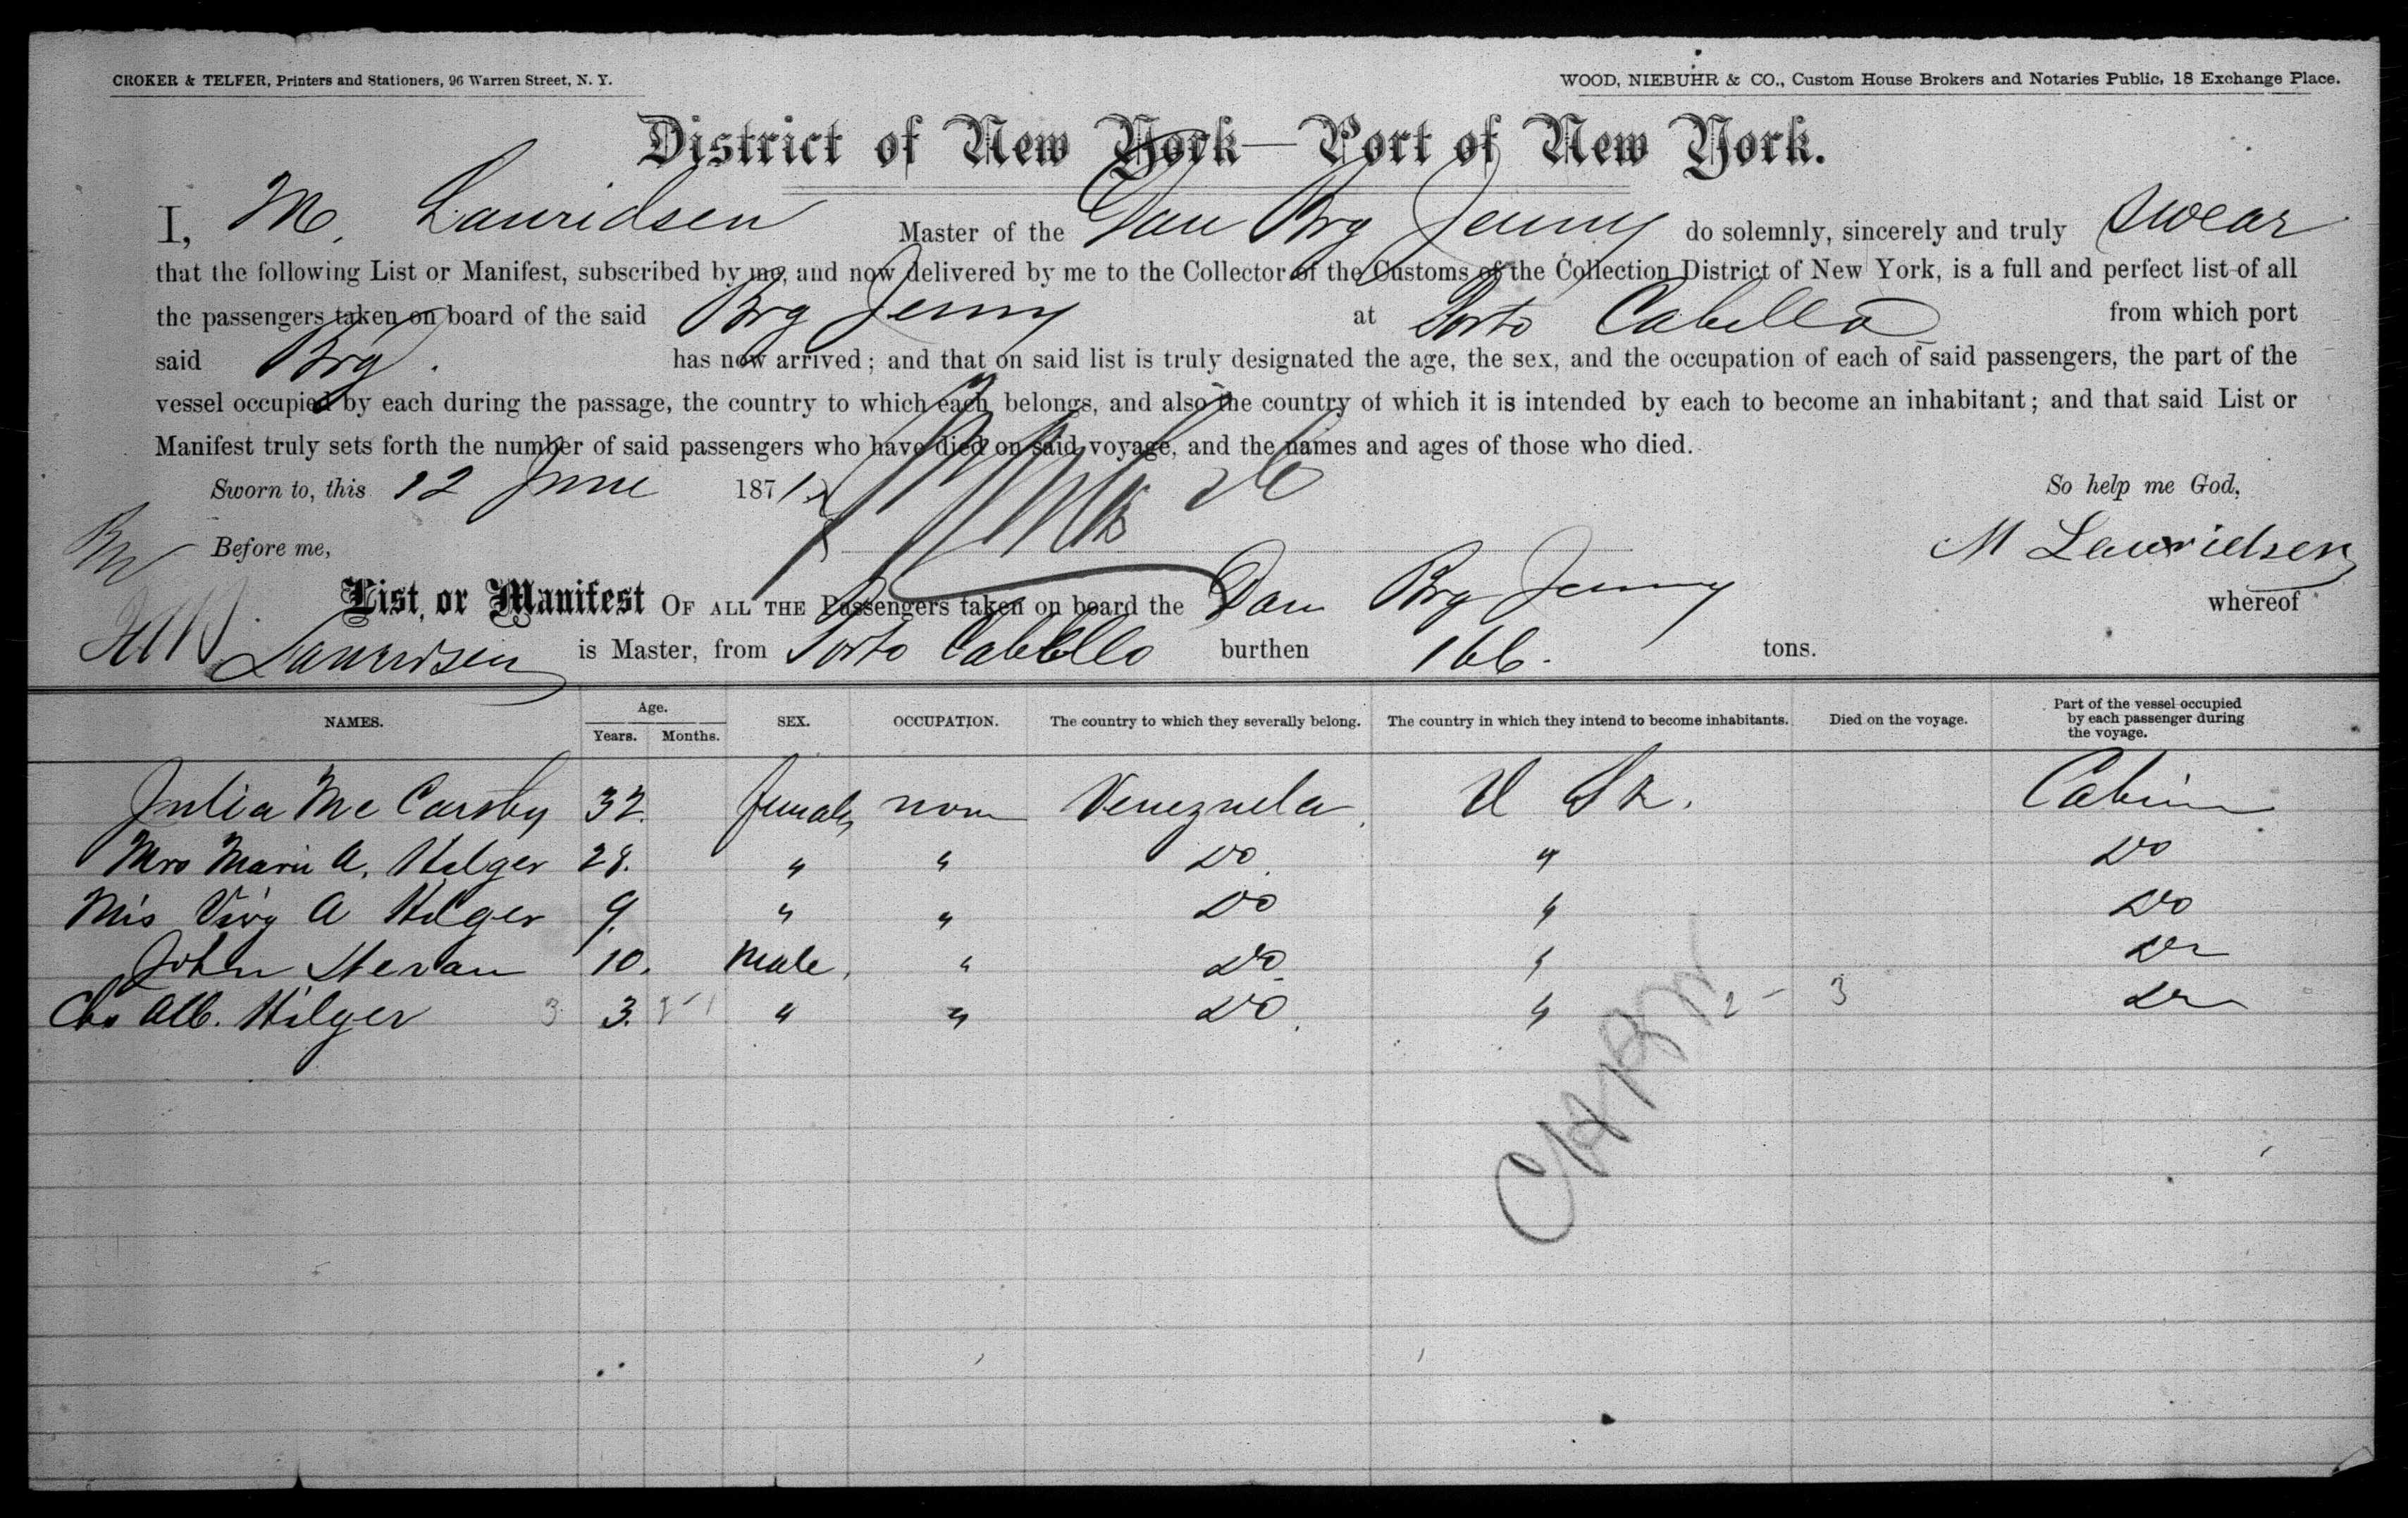 CROKER & TELFER, Printers and Stationers, 96 Warren Street, N. Y.
WOOD, NIEBUHR & CO., Custom House Brokers and Notaries Public, 18 Exchange Place.
District of New York—Port of New York.
I, M. Lauridsen Master of the Dan Brg Jenny do solemnly, sincerely and truly swear
that the following List or Manifest, subscribed by me, and now delivered by me to the Collector of the Customs of the Collection District of New York, is a full and perfect list of all
the passengers taken on board of the said Brg Jenny at Porto Cabello from which port
said Brg. has now arrived; and that on said list is truly designated the age, the sex, and the occupation of each of said passengers, the part of the
vessel occupied by each during the passage, the country to which each belongs, and also the country of which it is intended by each to become an inhabitant; and that said List or
Manifest truly sets forth the number of said passengers who have died on said voyage, and the names and ages of those who died.
Sworn to, this 12 June 1871. So help me God,
Before me, M Lauridsen
List or Manifest OF ALL THE Passengers taken on board the Dan Brg Jenny whereof
Lauridsen is Master, from Porto Cabello burthen 166. tons.
NAMES. Age. Years. Months. SEX. OCCUPATION. The country to which they severally belong. The country in which they intend to become inhabitants. Died on the voyage. Part of the vessel occupied by each passenger during the voyage.
Julia Mc Carthy 32. female non Venezuela. U St. Cabin
Mrs Marie A. Hilger 28. " " Do. " Do
Mis Virg A Hilger 9. " " Do " Do
John Heran 10. Male. " Do. " Do
Chs Alb. Hilger 3 3. " " Do. " 2 - 3 Do